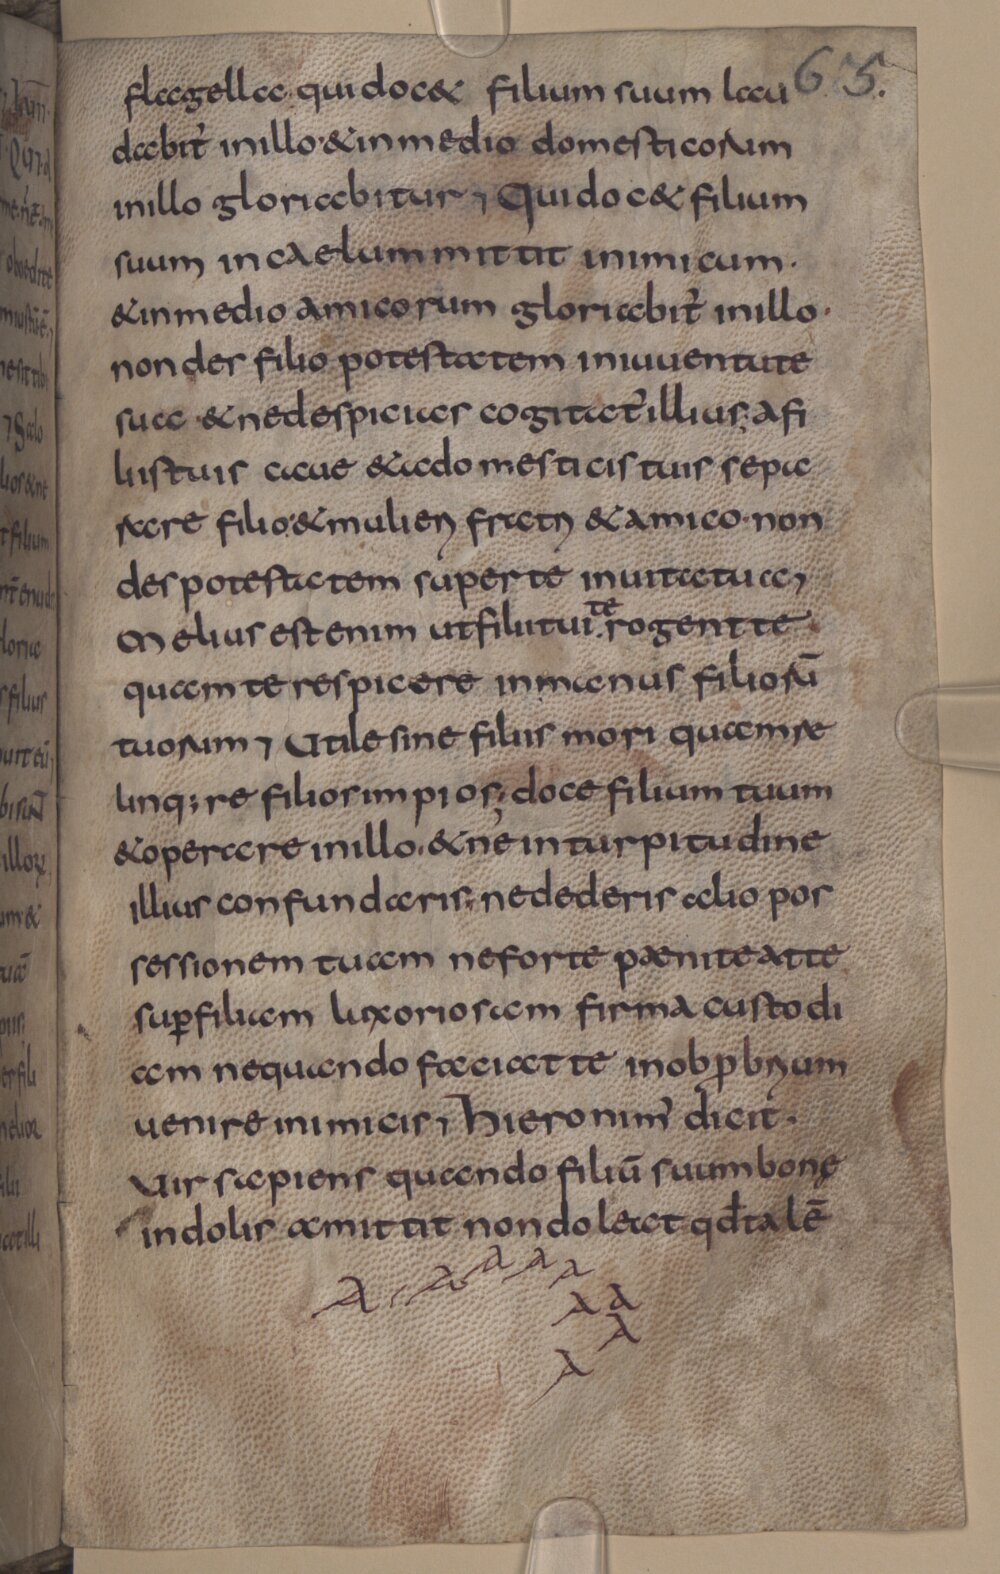 65.
flagella. qui doc& filium suum lau
dabit᷑ inillo·&inmedio domesticorum
inillo gloriabitur⁊ Quidoc& filium
suum incaelummittit inimicum·
&inmedio amicorum gloriabit᷑ inillo·
nondes filio potestatem iniuuentute
sua &nedespicias cogitat᷑illius; afi
liistuis caue &adomesticis tuis sepa
rare filio·&mulieri fratri &amico·non
despotestatem superte inuitatua⁊
Melius est enim utfiliitui te rogent te
quamterespicere inmanus filiorū
tuorum⁊ Utilesine filiis mori quamre
linq;re filiosimpios; doce filium tuum
&operare inillo·&ne inturpitudine
illius confundaris; nedederis alio pos
sessionem tuam neforte pæniteatte
suꝑfiliam luxoriosam firma custodi
am nequando faciat te inobꝓbrium
uenire inimicis⁊ hieronim᷒ dicit·
Uir sapiens quando filiū suumbonę
indolis amittit nondoleat qđtalē
A A A A A
A A
A
A